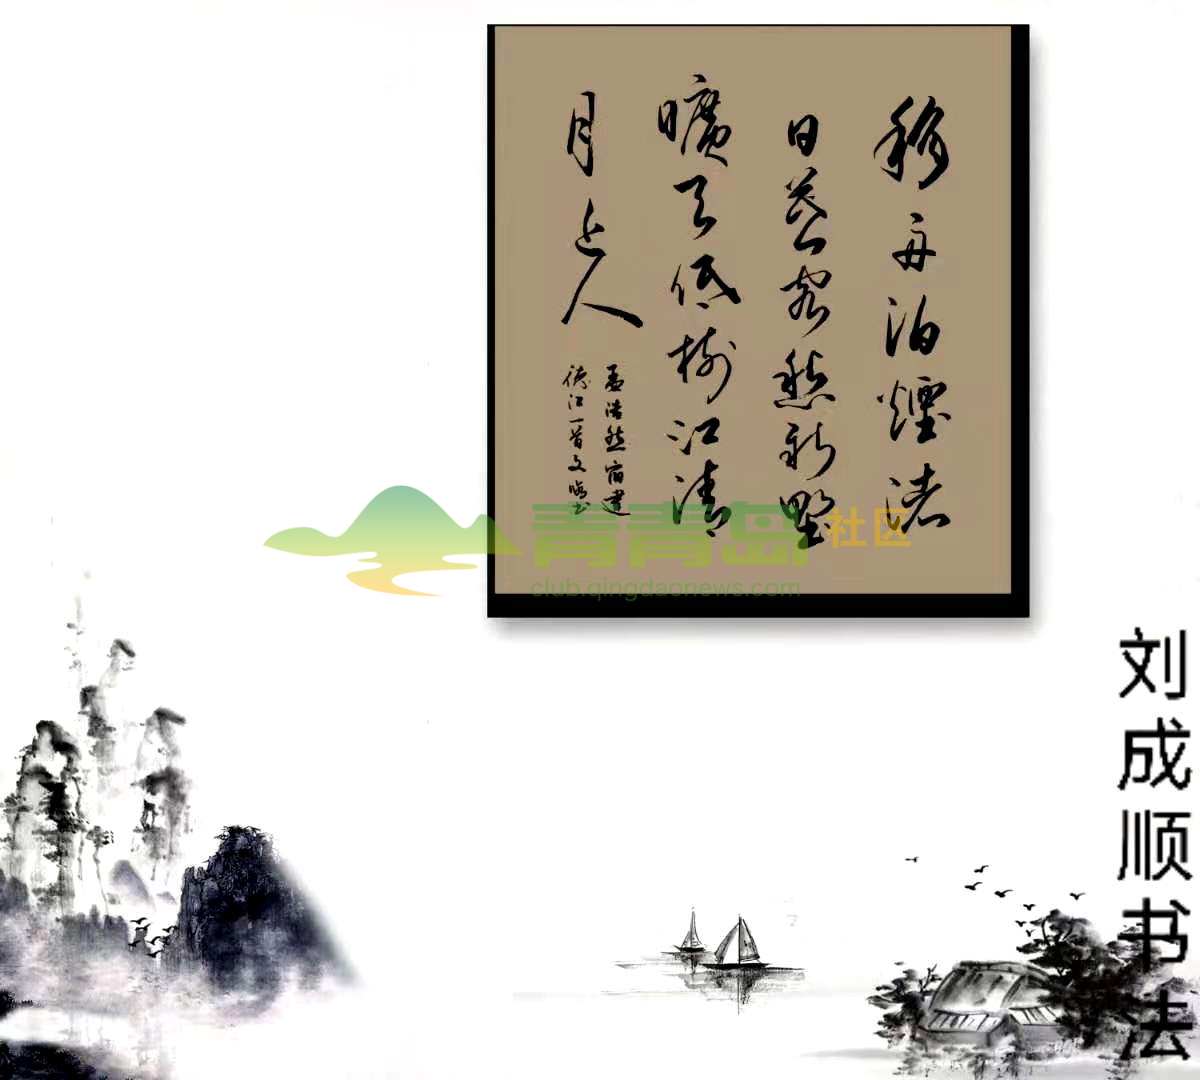 移舟泊煙渚
日暮客愁新野
曠天低樹江清
月近人
孟浩然宿建
德江一首文
青青岛社区
club.qingdaonews.com
刘成顺书法